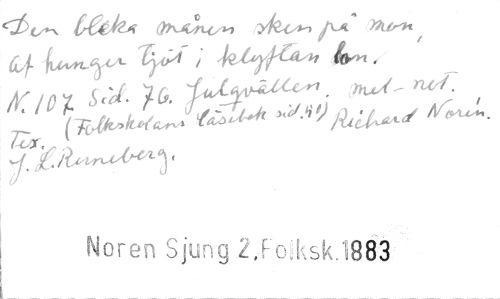 Den bleka månen sken på mon,
af hunger tjöt i klyftan lon.
N. 107 Sid. 76. Julqvällen. mel-not.
Tex. (Folkskolans läsebok sid. 41) Richard Norén.
J. L. Runeberg.
Noren Sjung 2. Folksk. 1883